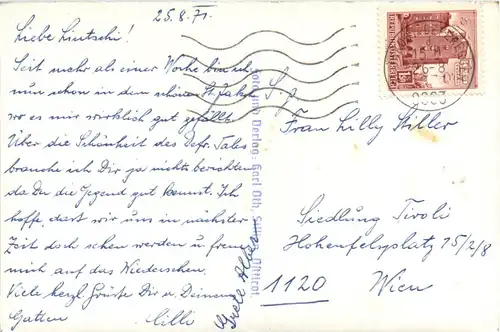 25.8.71.
Liebe Lintschi!
Seit mehr als einer Woche bin ich
nun schon in dem schönen St. Jakob
wo es mir wirklich gut gefällt.
Über die Schönheit des Defr. Tales
brauche ich Dir ja nichts berichten
da Du die Gegend gut kennst. Ich
hoffe, dass wir uns in nächster
Zeit doch sehen werden u. freue
mich auf das Wiedersehen.
Viele herzl. Grüße Dir u. Deinem
Gatten Cilli
S. g.
Frau Lilly Stiller
Siedlung Tivoli
Hohenfelsplatz 15/2/8
1120 Wien
Verlag: Karl
Osttirol